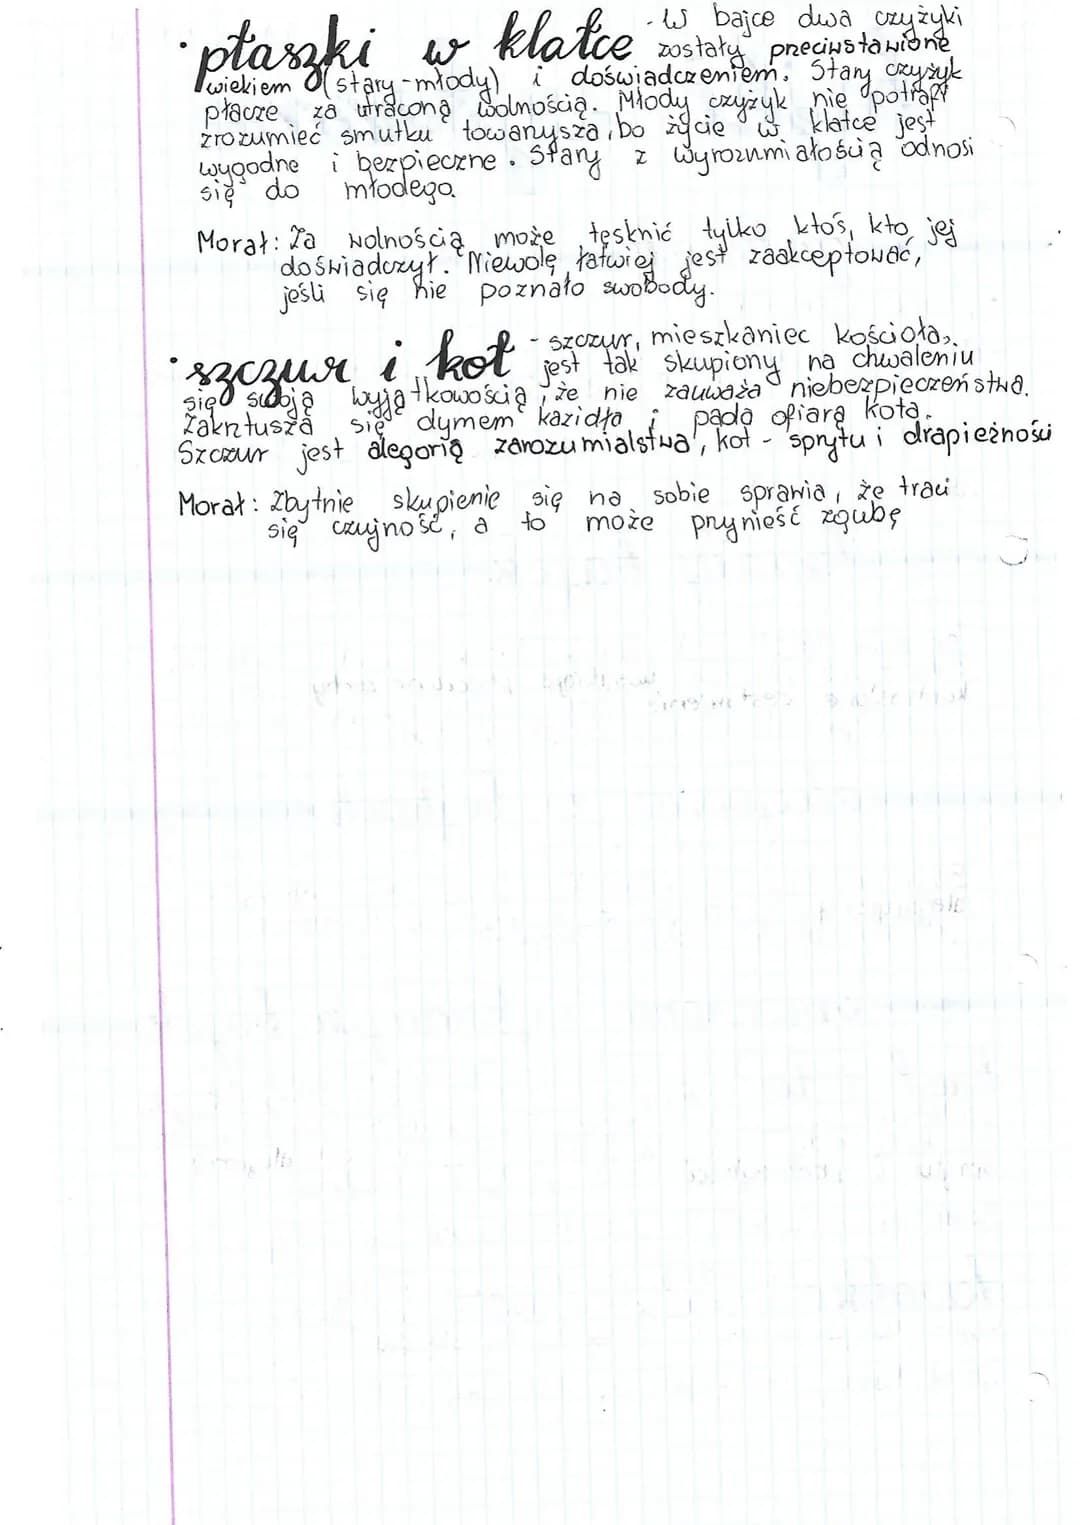 · ptaszki w klatce - W bajce dwa czyżyki
zostały przeciwstawione
wiekiem (stary - młody) i doświadczeniem. Stary czyżyk
płacze za utraconą wolnością. Młody czyżyk nie potrafi
zrozumieć smutku towarzysza, bo życie w klatce jest
wygodne i bezpieczne. Stary z wyrozumiałością odnosi
się do młodego.
Morał: Za wolnością może tęsknić tylko ktoś, kto jej
doświadczył. Niewolę łatwiej jest zaakceptować,
jeśli się nie poznało swobody.
· szczur i kot - szczur, mieszkaniec kościoła,
jest tak skupiony na chwaleniu
się swoją wyjątkowością, że nie zauważa niebezpieczeństwa.
Zakrztusza się dymem kazidła i pada ofiarą kota.
Szczur jest alegorią zarozumialstwa, kot - sprytu i drapieżności
Morał: Zbytnie skupienie się na sobie sprawia, że traci
się czujność, a to może przynieść zgubę